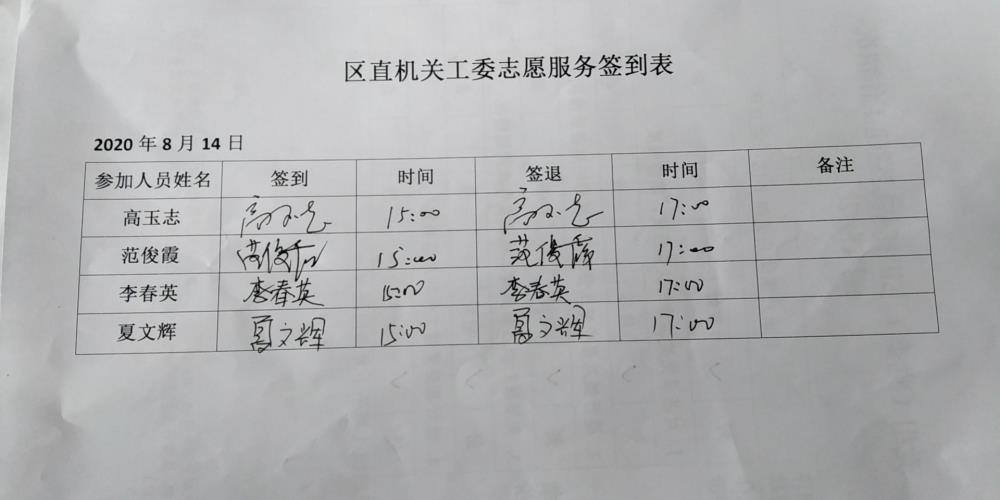 区直机关工委志愿服务签到表
2020 年 8 月 14 日
参加人员姓名 签到 时间 签退 时间 备注
高玉志 高玉志 15:00 高玉志 17:00
范俊霞 范俊霞 15:00 范俊霞 17:00
李春英 李春英 15:00 李春英 17:00
夏文辉 夏文辉 15:00 夏文辉 17:00